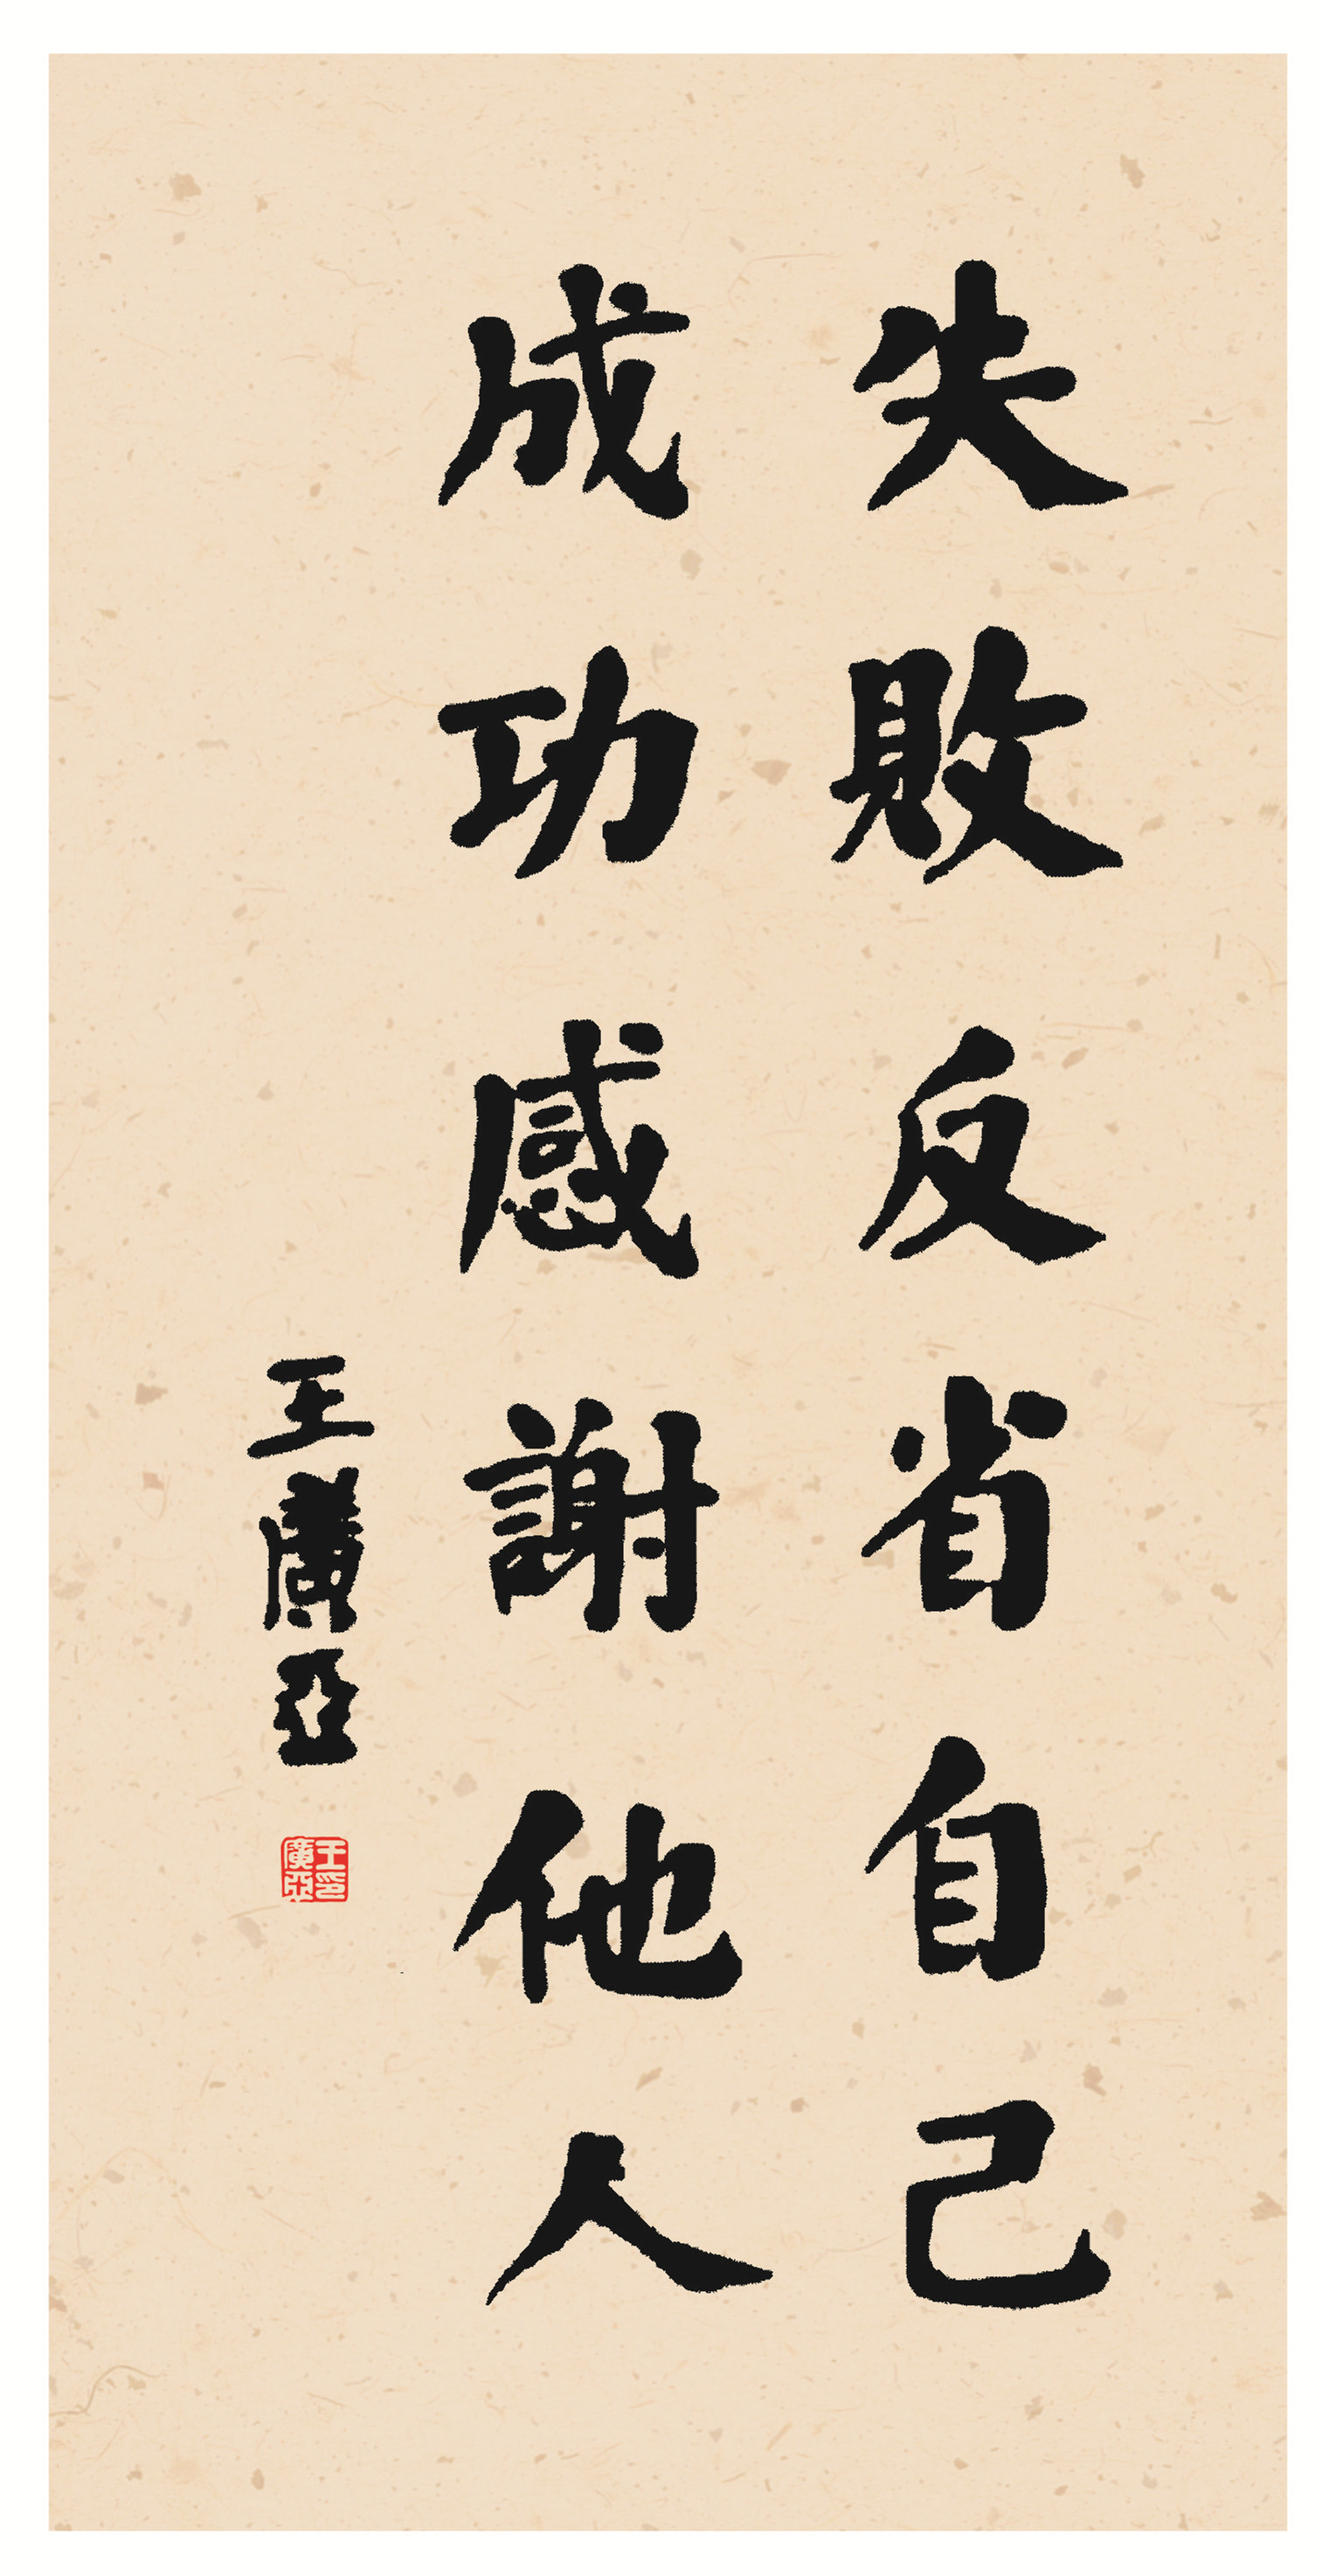 失敗反省自己
成功感謝他人
王廣亞
王印
廣亞